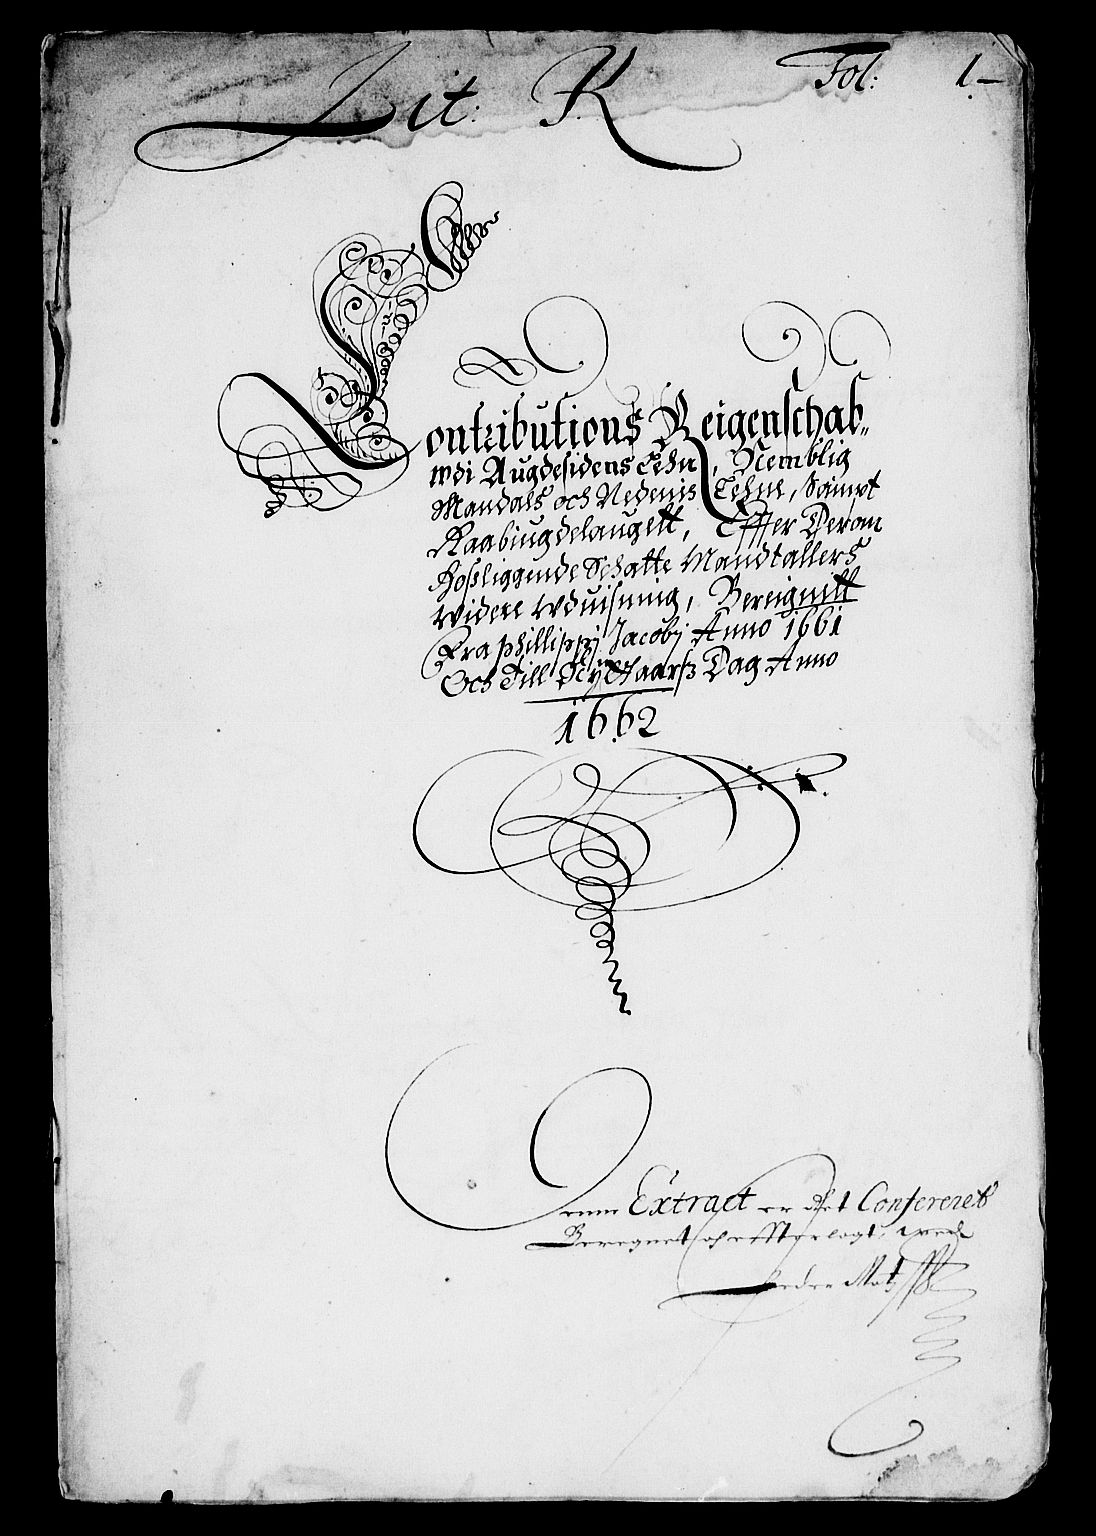 Lit: K Fol: 1.-
Contributions Reigenschab,,
wdi Augdesidens Lehn, Nemblig
Mandals och Nedenis Lehne, Sampt
Raabiugdelaugett, Effter Deran
hosliggende Schatte Mandtallers
widere wduisning, Bereignitt
Fra phillippj Jacobj Anno 1661
Och Till Nytt Aarss Dag Anno
1662
Denne Extract er Ret Confereret
Beregnet och effterlagt,
Peder Matz